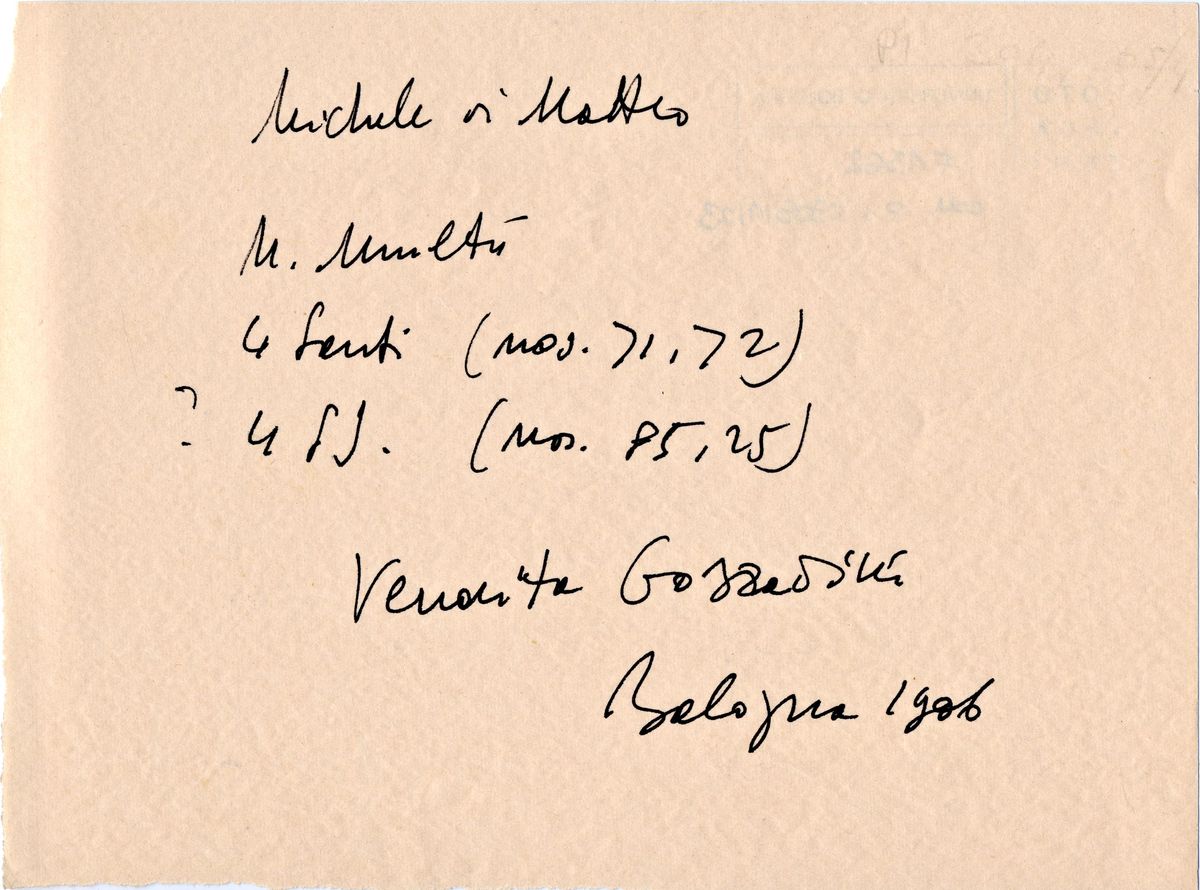 Michele di Matteo
M. Umiltà
4 Santi (nos. 71, 72)
? 4 SS. (nos. 85, 25)
Vendita Gozzadini
Bologna 1906